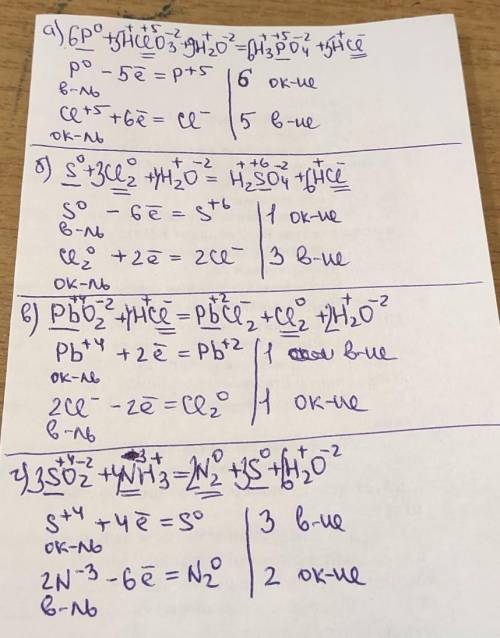 а) 6P⁰ + 5HClO₃ + 9H₂O = 6H₃PO₄ + 5HCl
P⁰ - 5ē = P⁺⁵ | 6 ок-ие
в-ль
Cl⁺⁵ + 6ē = Cl⁻ | 5 в-ие
ок-ль
б) S⁰ + 3Cl₂⁰ + 4H₂O = H₂SO₄ + 6HCl
S⁰ - 6ē = S⁺⁶ | 1 ок-ие
в-ль
Cl₂⁰ + 2ē = 2Cl⁻ | 3 в-ие
ок-ль
в) PbO₂ + 4HCl = PbCl₂ + Cl₂⁰ + 2H₂O
Pb⁺⁴ + 2ē = Pb⁺² | 1 в-ие
ок-ль
2Cl⁻ - 2ē = Cl₂⁰ | 1 ок-ие
в-ль
г) 3SO₂ + 4NH₃ = 2N₂⁰ + 3S⁰ + 6H₂O
S⁺⁴ + 4ē = S⁰ | 3 в-ие
ок-ль
2N⁻³ - 6ē = N₂⁰ | 2 ок-ие
в-ль